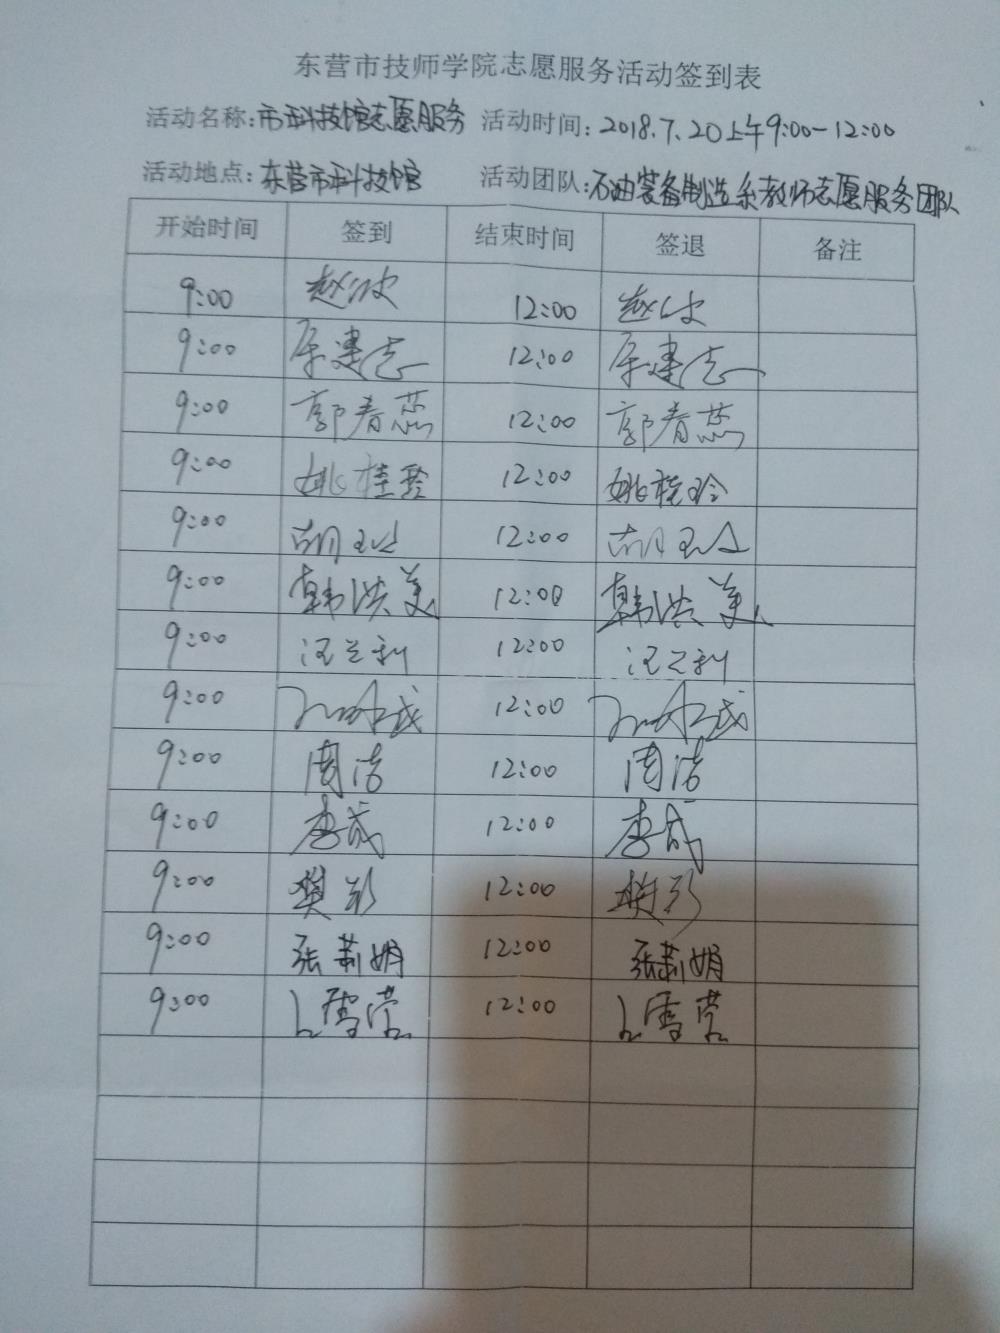 东营市技师学院志愿服务活动签到表
活动名称:市科技馆志愿服务 活动时间:2018.7.20上午9:00-12:00
活动地点:东营市科技馆 活动团队:石油装备制造系教师志愿服务团队
开始时间 签到 结束时间 签退 备注
9:00 赵波 12:00 赵波
9:00 建志 12:00 建志
9:00 郭春蕊 12:00 郭春蕊
9:00 姚桂玲 12:00 姚桂玲
9:00 胡 12:00 胡
9:00 韩洪美 12:00 韩洪美
9:00 汪兰利 12:00 汪兰利
9:00 12:00
9:00 周洁 12:00 周洁
9:00 李成 12:00 李成
9:00 樊彩 12:00 樊彩
9:00 张莉娟 12:00 张莉娟
9:00 雪莹 12:00 雪莹